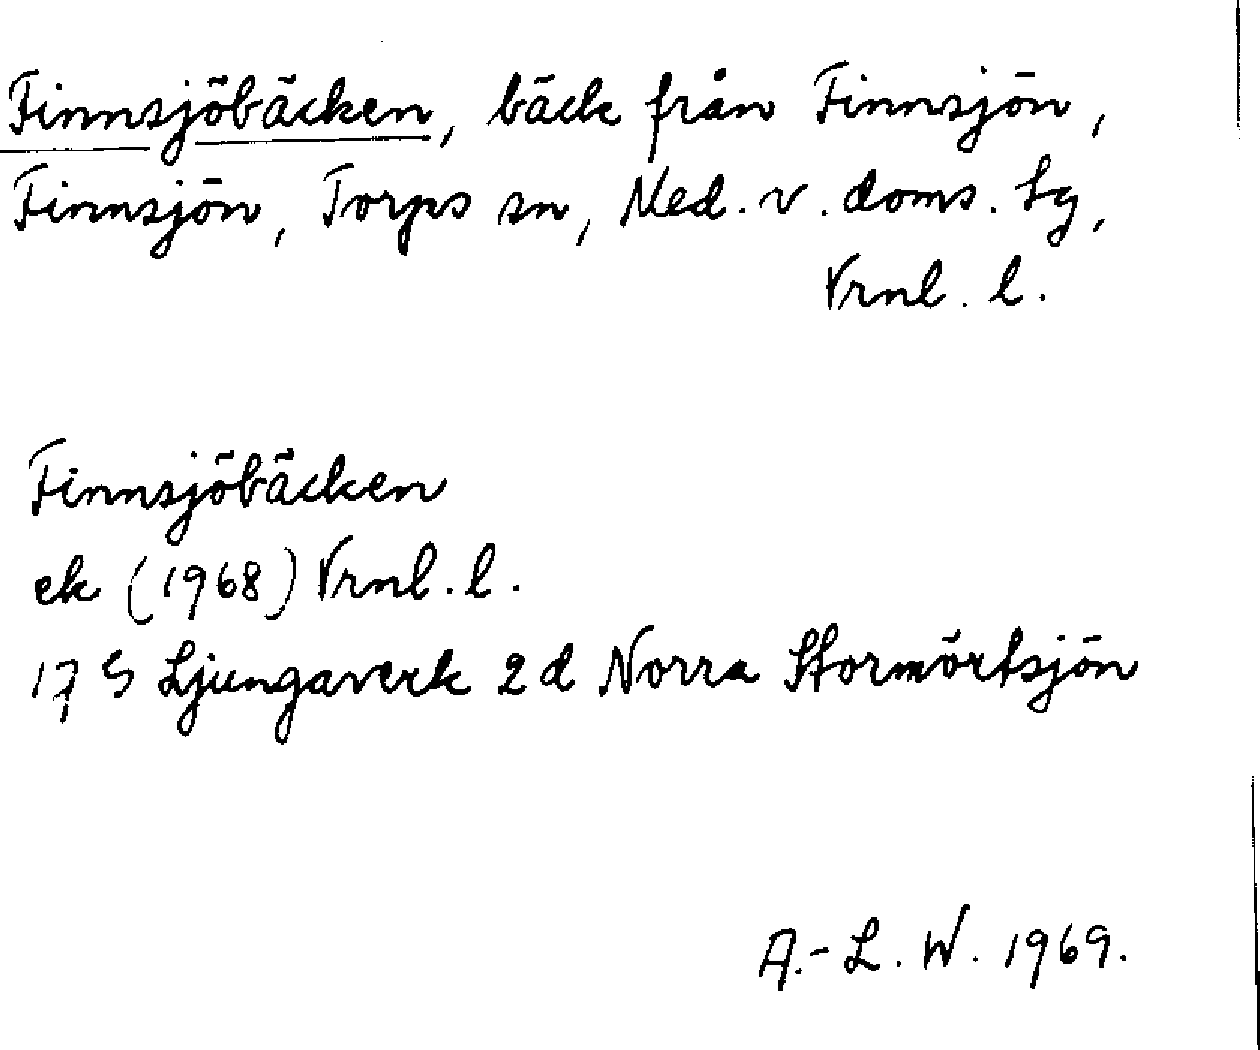 Finnsjöbäcken, bäck från Finnsjön,
Finnsjön, Torps sn, Med. v. doms. tg,
Vrnl. l.
Finnsjöbäcken
ek (1968) Vrnl. l.
17 G Ljungaverk 2 d Norra Stormörtsjön
A.-L. W. 1969.